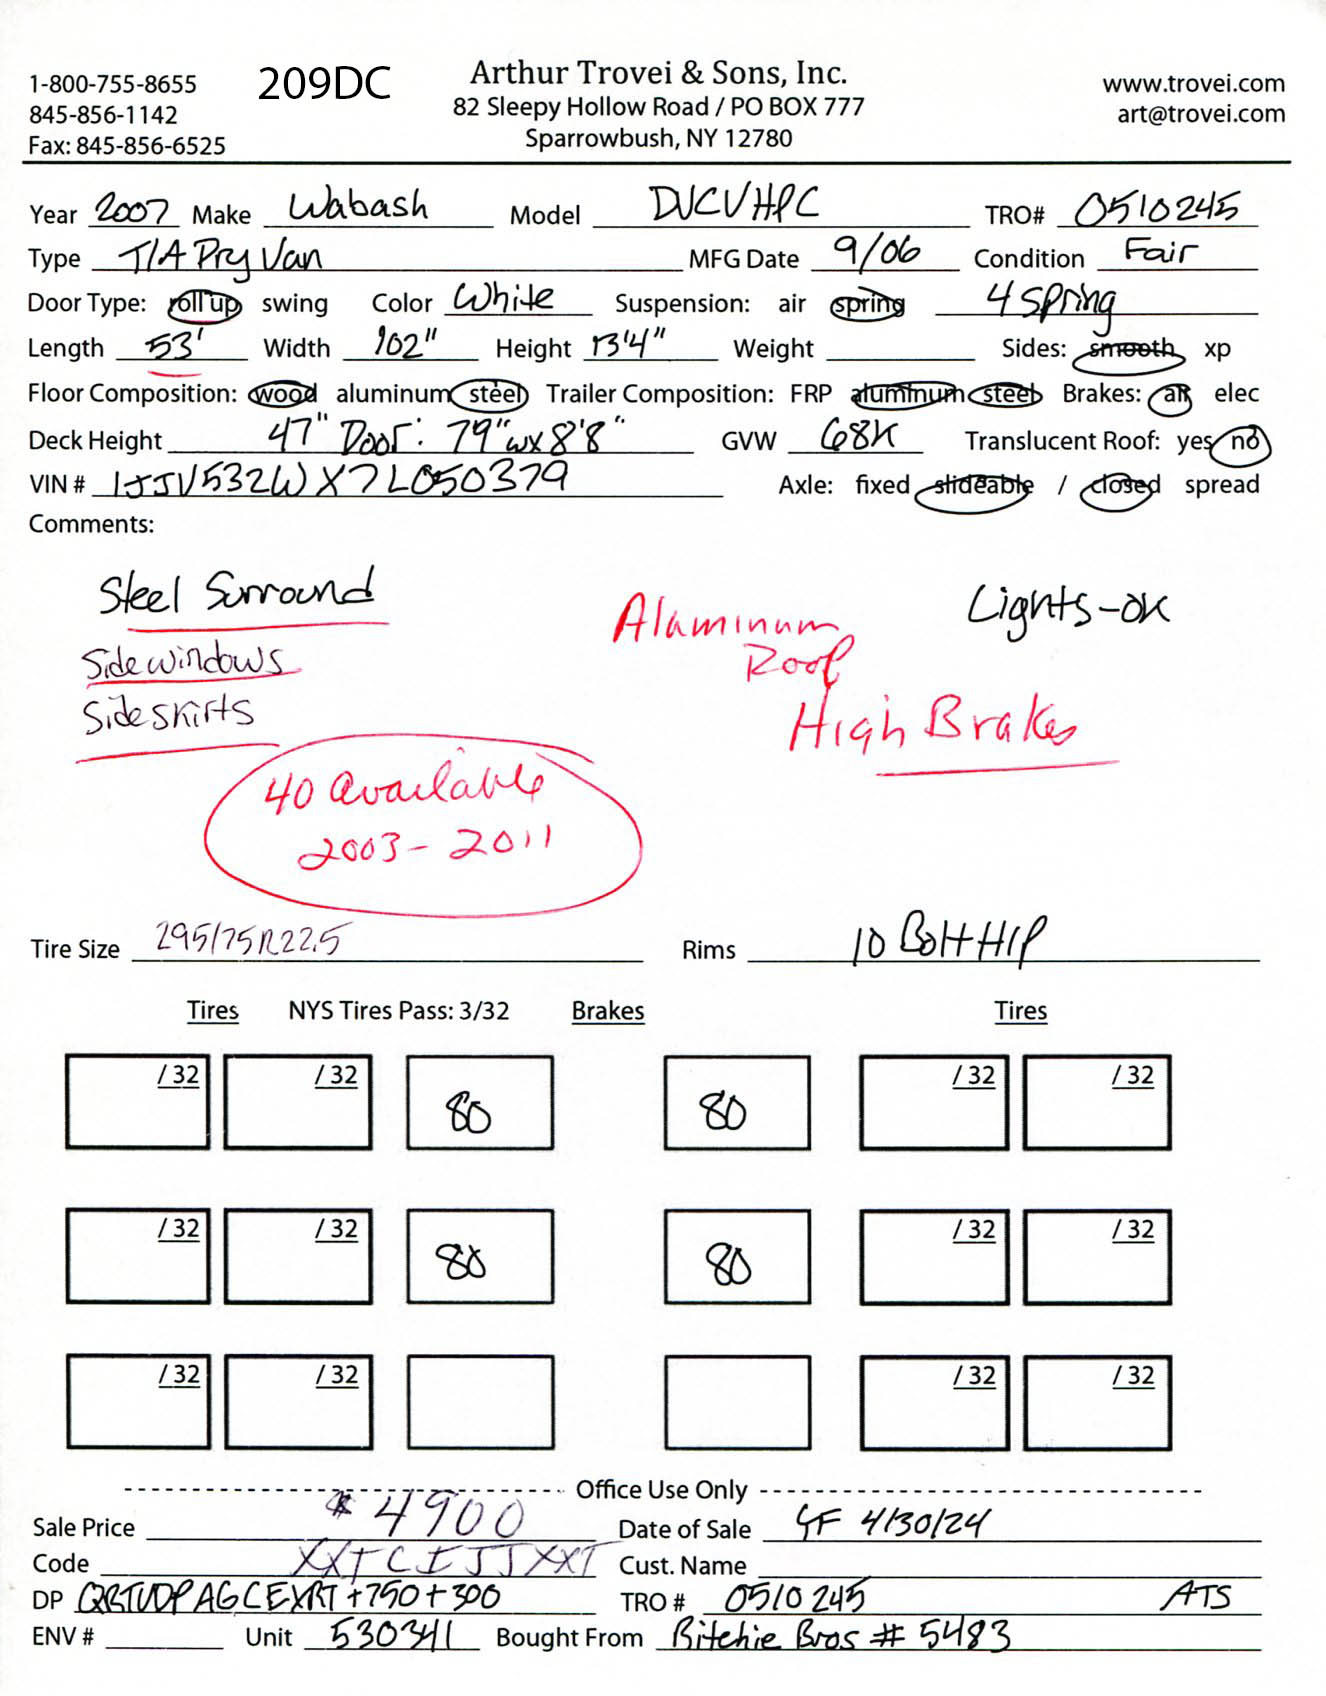 1-800-755-8655 209DC Arthur Trovei & Sons, Inc. www.trovei.com
845-856-1142 82 Sleepy Hollow Road / PO BOX 777 art@trovei.com
Fax: 845-856-6525 Sparrowbush, NY 12780
Year 2007 Make Wabash Model DVCVHPC TRO# 0510245
Type T/A Dry Van MFG Date 9/06 Condition Fair
Door Type: roll up swing Color White Suspension: air spring 4 Spring
Length 53' Width 102" Height 13'4" Weight Sides: smooth xp
Floor Composition: wood aluminum steel Trailer Composition: FRP aluminum steel Brakes: air elec
Deck Height 47" Door: 79"w x 8'8" GVW 68K Translucent Roof: yes no
VIN # 1JJV532WX7L050379 Axle: fixed slideable / closed spread
Comments:
Steel Surround Aluminum Roof Lights-OK
Side windows
Side skirts High Brakes
40 available
2003-2011
Tire Size 295/75R22.5 Rims 10 Bolt H/P
Tires NYS Tires Pass: 3/32 Brakes Tires
/32 /32 80 80 /32 /32
/32 /32 80 80 /32 /32
/32 /32 /32 /32
Office Use Only
Sale Price $4900 Date of Sale GF 4/30/24
Code XXTCIJJXXT Cust. Name
DP +750+300 TRO # 0510245 ATS
ENV # Unit 530341 Bought From Ritchie Bros # 5483